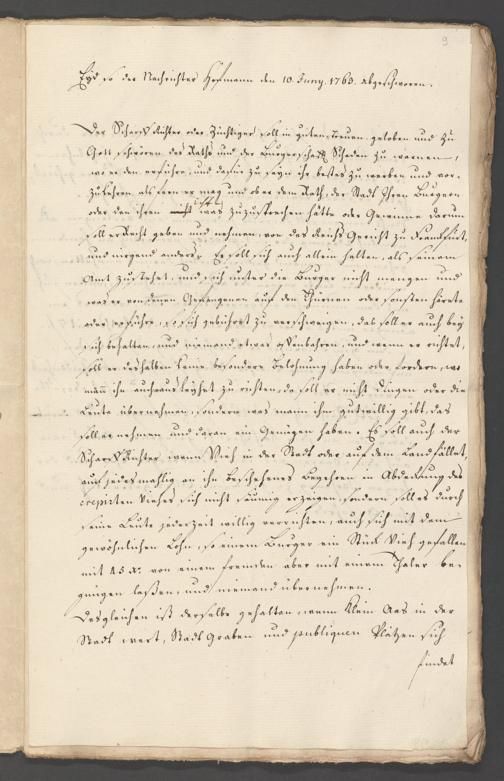 9
Eyd, so der Nachrichter Hofmann den 10. Juny. 1763. abgeschworen.
Der Scharff Richter oder Züchtiger soll in guten Treuen geloben und zu
Gott schwören, des Raths und der Burgerschafft Schaden zu warnen,
wo er den erführe, und dafür zu seyn ihr bestes zu werben und vor-
zukehren, als fern er mag und ober dem Rath, der Stadt Ihren Burgern
oder den ihren icht was zuzusprechen hätte oder Gewinne darum
soll er Recht geben und nehmen, vor des Reichs Gericht zu Franckfurt,
und nirgend anders. Er soll sich auch allein halten, als seinem
Amt zustehet, und sich unter die Burger nicht mengen und
was er von denen Gefangenen auf den Thürnen oder sonsten hörete
oder erführe, so sich gebührt zu verschweigen, das soll er auch bey
sich behalten, und niemand etwas offenbahren, und wenn er richtet,
soll er deshalben keine besondere Belohnung haben oder fordern, wo
mann ihn auch ausleyhet zu richten, da soll er nicht dingen oder die
Leute übernehmen, sondern was mann ihm gutwillig gibt, das
soll er nehmen und daran ein Genügen haben. Es soll auch der
Scharff Richter wenn Vieh in der Stadt oder auf dem Land fället,
auf jedesmahlig an ihn beschehenes Begehren in Abdeckung des
crepirten Viehes sich nicht säumig erzeigen, sondern solches durch
seine Leute jederzeit willig verrichten, auch sich mit dem
gewöhnlichen Lohn, so einem Burger ein Stück Vieh gefallen
mit 45 x. von einem fremden aber mit einem Thaler be-
gnügen laßen, und niemand übernehmen.
Desgleichen ist derselbe gehalten, wenn klein Aas in der
Stadt, Stadt Graben und publiquen Plätzen sich
findet